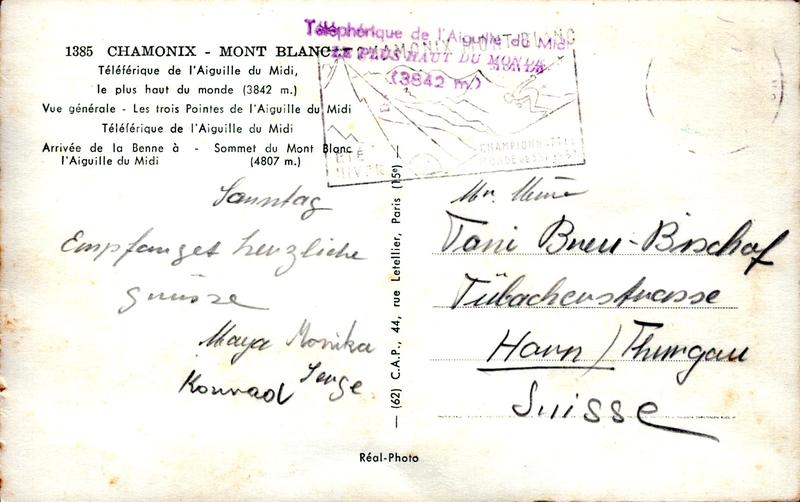 Téléphérique de l'Aiguille du Midi
LE PLUS HAUT DU MONDE
(3842 m.)
CHAMONIX MONT-BLANC
ÉTÉ
HIVER
CHAMPIONNATS
1385 CHAMONIX - MONT BLANC
Téléférique de l'Aiguille du Midi,
le plus haut du monde (3842 m.)
Vue générale - Les trois Pointes de l'Aiguille du Midi
Téléférique de l'Aiguille du Midi
Arrivée de la Benne à - Sommet du Mont Blanc
l'Aiguille du Midi (4807 m.)
Sonntag
Empfanget herzliche
grüsse
Maya Monika
Konrad Serge
(62) C.A.P., 44, rue Letellier, Paris (15e)
Mr. Mme
Toni Bischof
Tübacherstrasse
Horn / Thurgau
Suisse
Réal-Photo